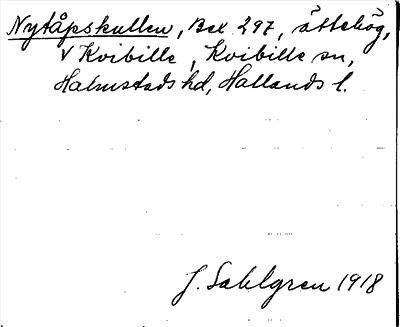 Nytåpskullen, Bex 297, ättehög,
V Kvibille, Kvibille sn,
Halmstads hd, Hallands l.
J. Sahlgren 1918